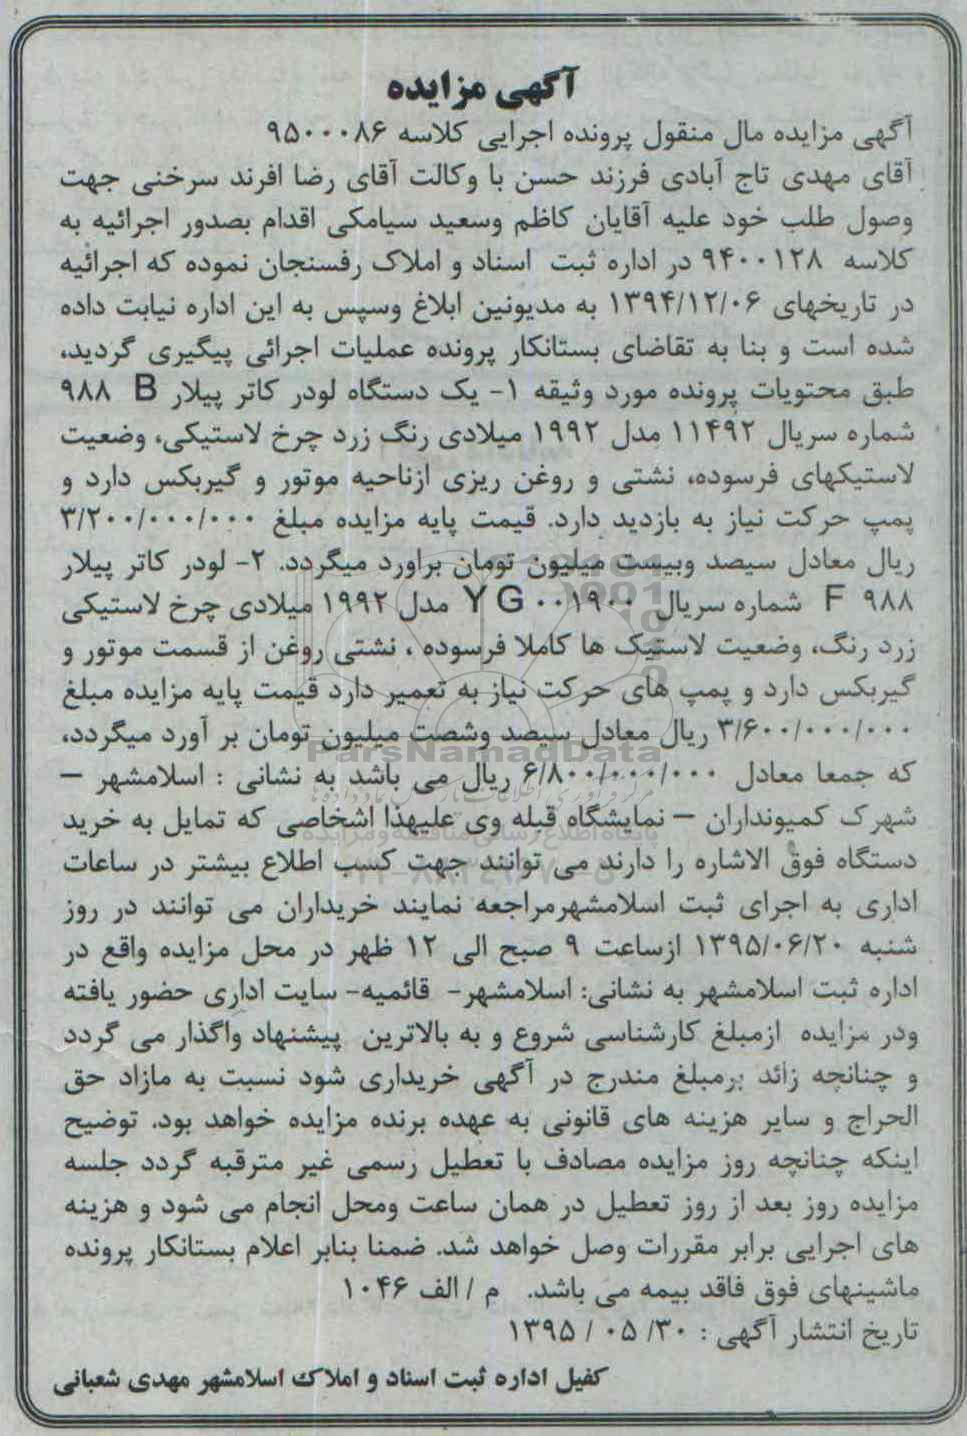 آگهی مزایده
آگهی مزایده مال منقول پرونده اجرایی کلاسه ۹۵۰۰۰۸۶
آقای مهدی تاج آبادی فرزند حسن با وکالت آقای رضا افرند سرخنی جهت
وصول طلب خود علیه آقایان کاظم وسعید سیامکی اقدام بصدور اجرائیه به
کلاسه ۹۴۰۰۱۲۸ در اداره ثبت اسناد و املاک رفسنجان نموده که اجرائیه
در تاریخهای ۱۳۹۴/۱۲/۰۶ به مدیونین ابلاغ وسپس به این اداره نیابت داده
شده است و بنا به تقاضای بستانکار پرونده عملیات اجرائی پیگیری گردید،
طبق محتویات پرونده مورد وثیقه ۱- یک دستگاه لودر کاتر پیلار B ۹۸۸
شماره سریال ۱۱۴۹۲ مدل ۱۹۹۲ میلادی رنگ زرد چرخ لاستیکی، وضعیت
لاستیکهای فرسوده، نشتی و روغن ریزی ازناحیه موتور و گیربکس دارد و
پمپ حرکت نیاز به بازدید دارد. قیمت پایه مزایده مبلغ ۳/۲۰۰/۰۰۰/۰۰۰
ریال معادل سیصد وبیست میلیون تومان براورد میگردد. ۲- لودر کاتر پیلار
۹۸۸ F شماره سریال YG ۰۰۱۹۰۰ مدل ۱۹۹۲ میلادی چرخ لاستیکی
زرد رنگ، وضعیت لاستیک ها کاملا فرسوده ، نشتی روغن از قسمت موتور و
گیربکس دارد و پمپ های حرکت نیاز به تعمیر دارد قیمت پایه مزایده مبلغ
۳/۶۰۰/۰۰۰/۰۰۰ ریال معادل سیصد وشصت میلیون تومان بر آورد میگردد،
که جمعا معادل ۶/۸۰۰/۰۰۰/۰۰۰ ریال می باشد به نشانی : اسلامشهر –
شهرک کمیونداران – نمایشگاه قبله وی علیهذا اشخاصی که تمایل به خرید
دستگاه فوق الاشاره را دارند می توانند جهت کسب اطلاع بیشتر در ساعات
اداری به اجرای ثبت اسلامشهرمراجعه نمایند خریداران می توانند در روز
شنبه ۱۳۹۵/۰۶/۲۰ ازساعت ۹ صبح الی ۱۲ ظهر در محل مزایده واقع در
اداره ثبت اسلامشهر به نشانی: اسلامشهر- قائمیه- سایت اداری حضور یافته
ودر مزایده ازمبلغ کارشناسی شروع و به بالاترین پیشنهاد واگذار می گردد
و چنانچه زائد برمبلغ مندرج در آگهی خریداری شود نسبت به مازاد حق
الحراج و سایر هزینه های قانونی به عهده برنده مزایده خواهد بود. توضیح
اینکه چنانچه روز مزایده مصادف با تعطیل رسمی غیر مترقبه گردد جلسه
مزایده روز بعد از روز تعطیل در همان ساعت ومحل انجام می شود و هزینه
های اجرایی برابر مقررات وصل خواهد شد. ضمنا بنابر اعلام بستانکار پرونده
ماشینهای فوق فاقد بیمه می باشد. م / الف ۱۰۴۶
تاریخ انتشار آگهی : ۳۰/ ۰۵ / ۱۳۹۵
کفیل اداره ثبت اسناد و املاک اسلامشهر مهدی شعبانی
ParsNamadData